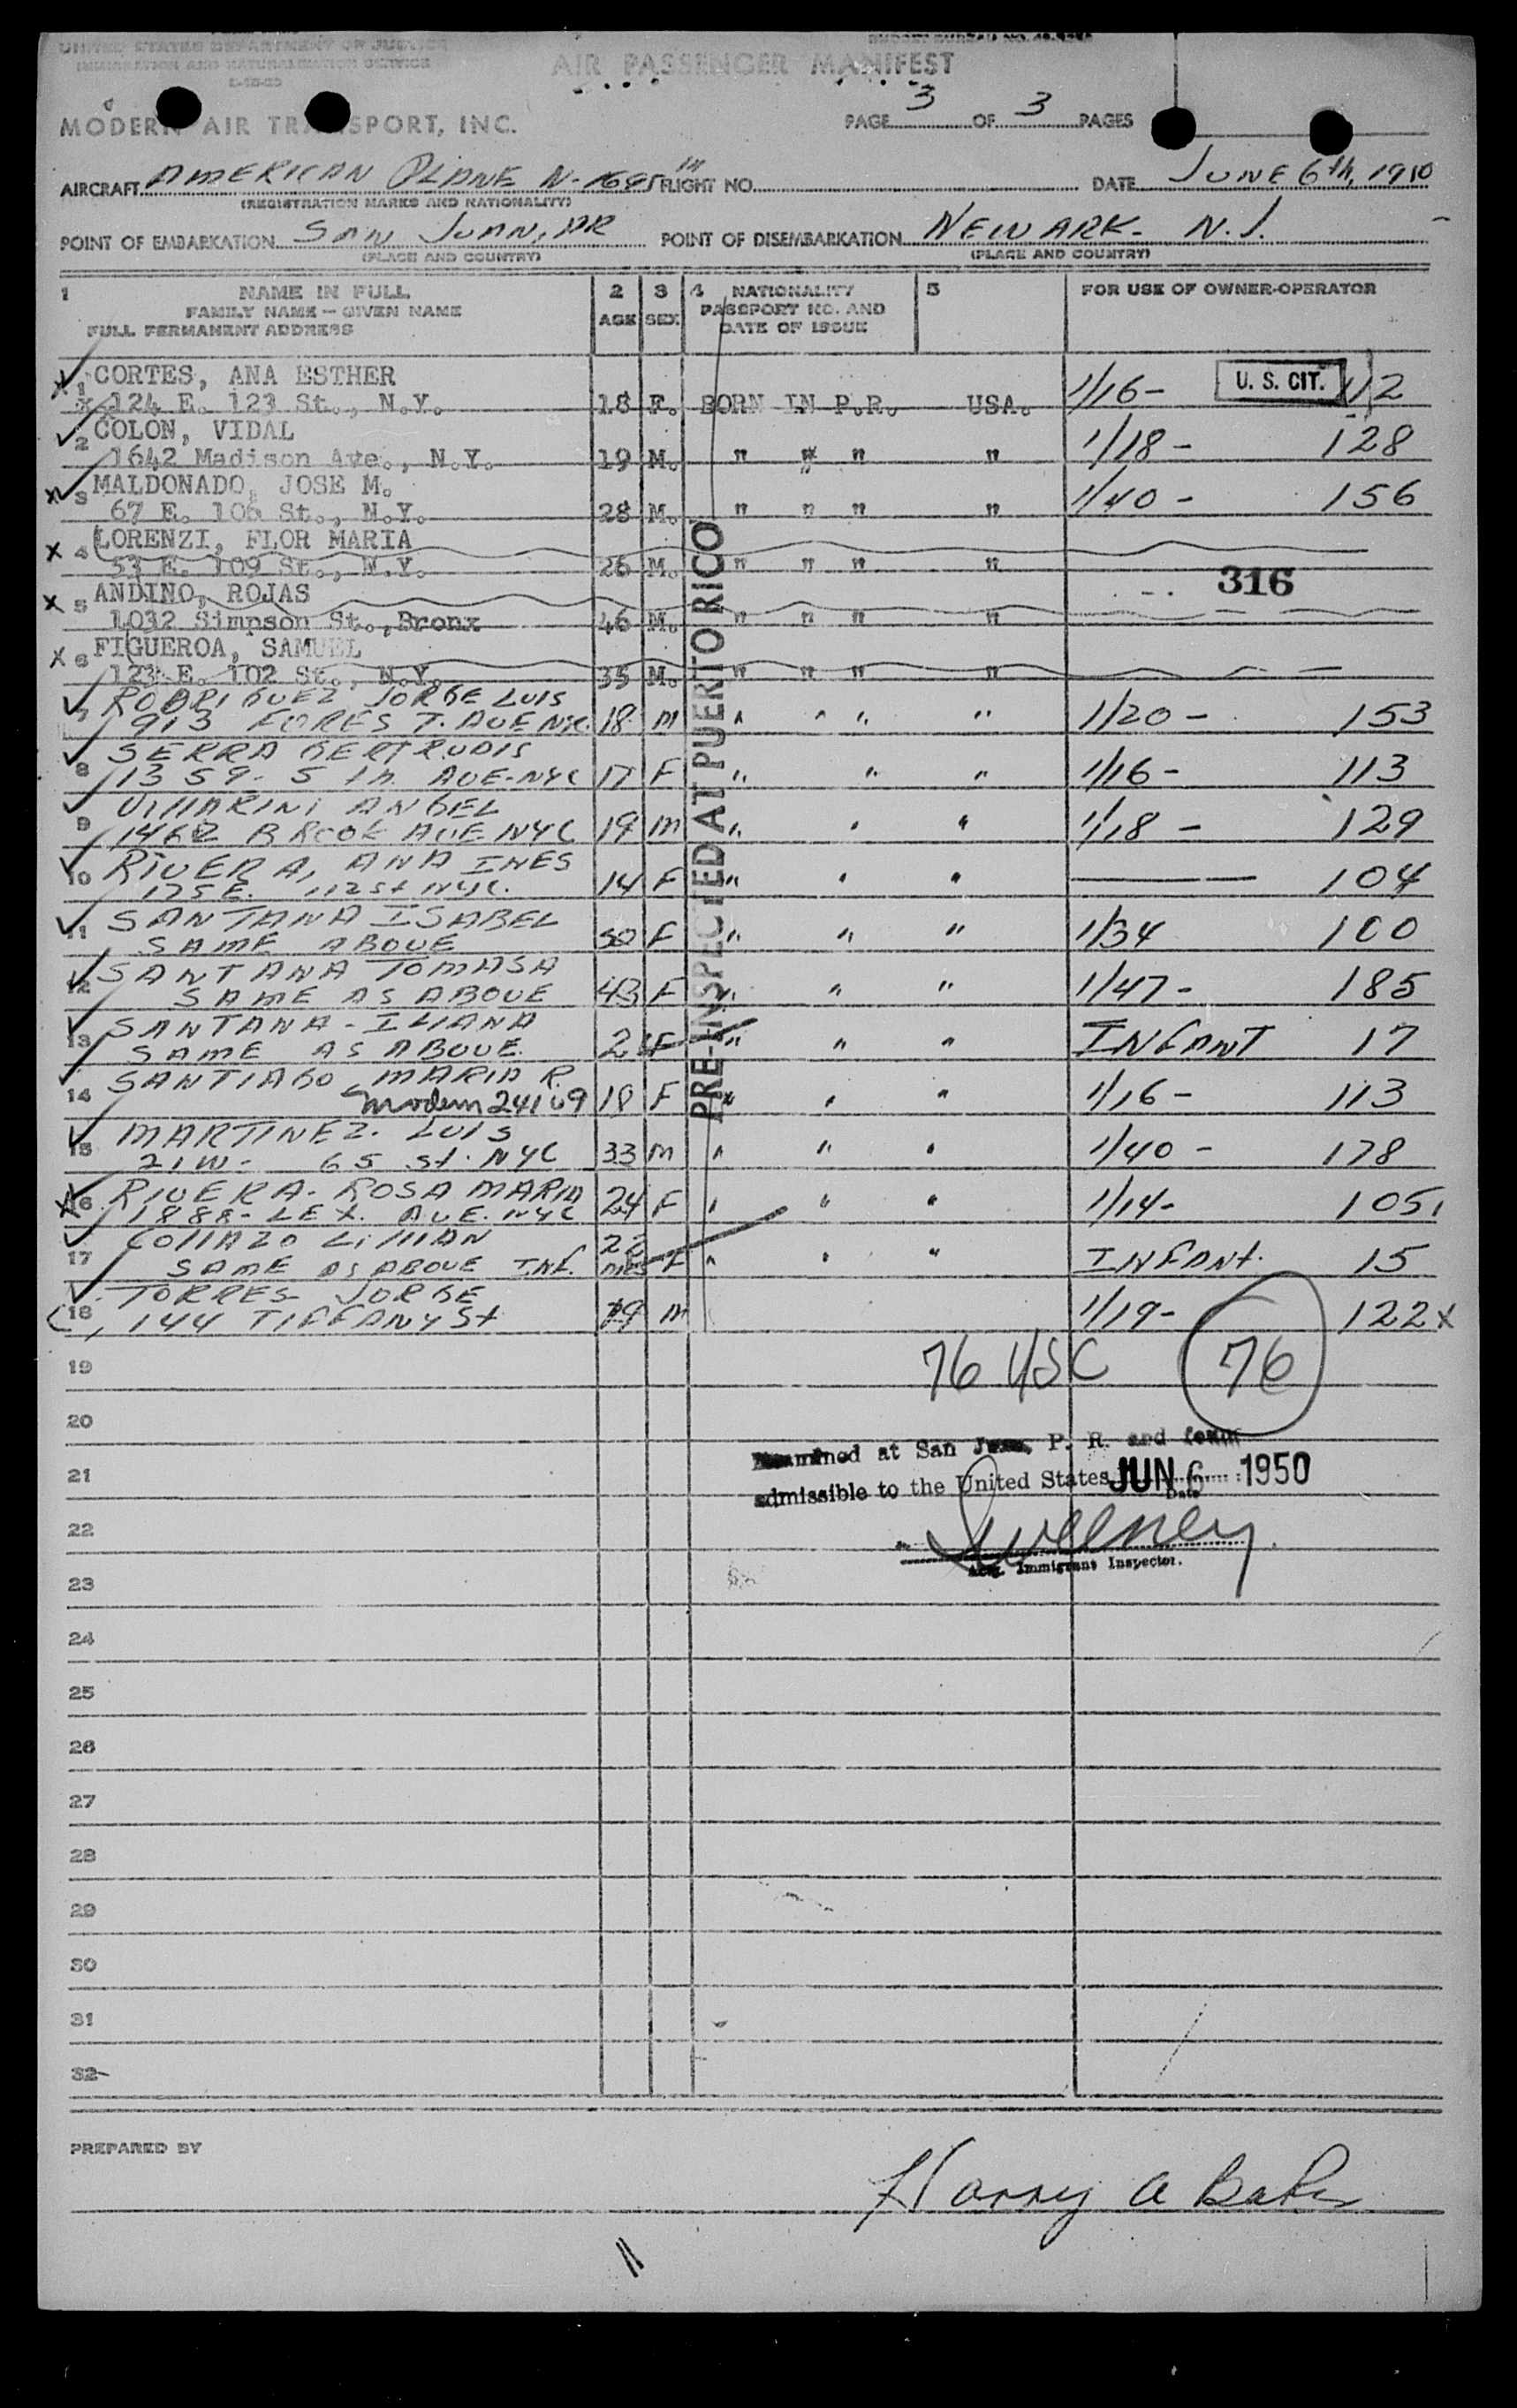 UNITED STATES DEPARTMENT OF JUSTICE
IMMIGRATION AND NATURALIZATION SERVICE
AIR PASSENGER MANIFEST
MODERN AIR TRANSPORT, INC.
PAGE 3 OF 3 PAGES
AIRCRAFT AMERICAN PLANE N- FLIGHT NO. DATE JUNE 6th, 1950
(REGISTRATION MARKS AND NATIONALITY)
POINT OF EMBARKATION SAN JUAN, PR POINT OF DISEMBARKATION NEWARK- N.J.
(PLACE AND COUNTRY) (PLACE AND COUNTRY)
1 NAME IN FULL 2 3 4 NATIONALITY 5 FOR USE OF OWNER-OPERATOR
FAMILY NAME - GIVEN NAME AGE SEX PASSPORT NO. AND
FULL PERMANENT ADDRESS DATE OF ISSUE
1 CORTES, ANA ESTHER U. S. CIT.
124 E. 123 St., N.Y. 18 F. BORN IN P.R. USA. 1/16- 112
2 COLON, VIDAL
1642 Madison Ave., N.Y. 19 M. " " " " 1/18- 128
3 MALDONADO, JOSE M.
67 E. 106 St., N.Y. 28 M. " " " " 1/40- 156
4 LORENZI, FLOR MARIA
53 E. 109 St., N.Y. 26 M. " " " "
316
5 ANDINO, ROJAS
1032 Simpson St., Bronx 46 M. " " " "
6 FIGUEROA, SAMUEL
123 E. 102 St., N.Y. 35 M. " " " "
7 RODRIGUEZ JORGE LUIS
913 FORES T. AVE NYC. 18 M " " " " 1/20- 153
8 SERRA GERTRUDIS
1359- 5 th. AVE-NYC 17 F " " " 1/16- 113
9 VILLARINI ANGEL
1462 BROOK AVE NYC 19 M " " " 1/18- 129
10 RIVERA, ANA INES
175 E. 112 St NYC. 14 F " " " 104
11 SANTANA ISABEL
SAME ABOVE 50 F " " " 1/34 100
12 SANTANA TOMASA
SAME AS ABOVE 43 F " " " 1/47- 185
13 SANTANA- ILIANA
SAME AS ABOVE. 2 F " " " INFANT 17
14 SANTIAGO, MARIA R.
Modern 24109 18 F " " " 1/16- 113
15 MARTINEZ- LUIS
21 W- 65 St. NYC 33 M " " " 1/40- 178
16 RIVERA- ROSA MARIA
1888- LEX. AVE. NYC 24 F " " " 1/14- 105
17 COLLAZO LILLIAN 22
SAME AS ABOVE INF. MES F " " " INFANT. 15
18 TORRES JORGE
144 TIFFANY St 19 M 1/19- 122 x
PRE-INSPECTED AT PUERTO RICO
19 76 USC 76
20
Examined at San Juan, P. R. and found
21 admissible to the United States JUN 6 1950
Date
22 Sweeney
Immigrant Inspector.
23
24
25
26
27
28
29
30
31
32
PREPARED BY
Harry A Baker